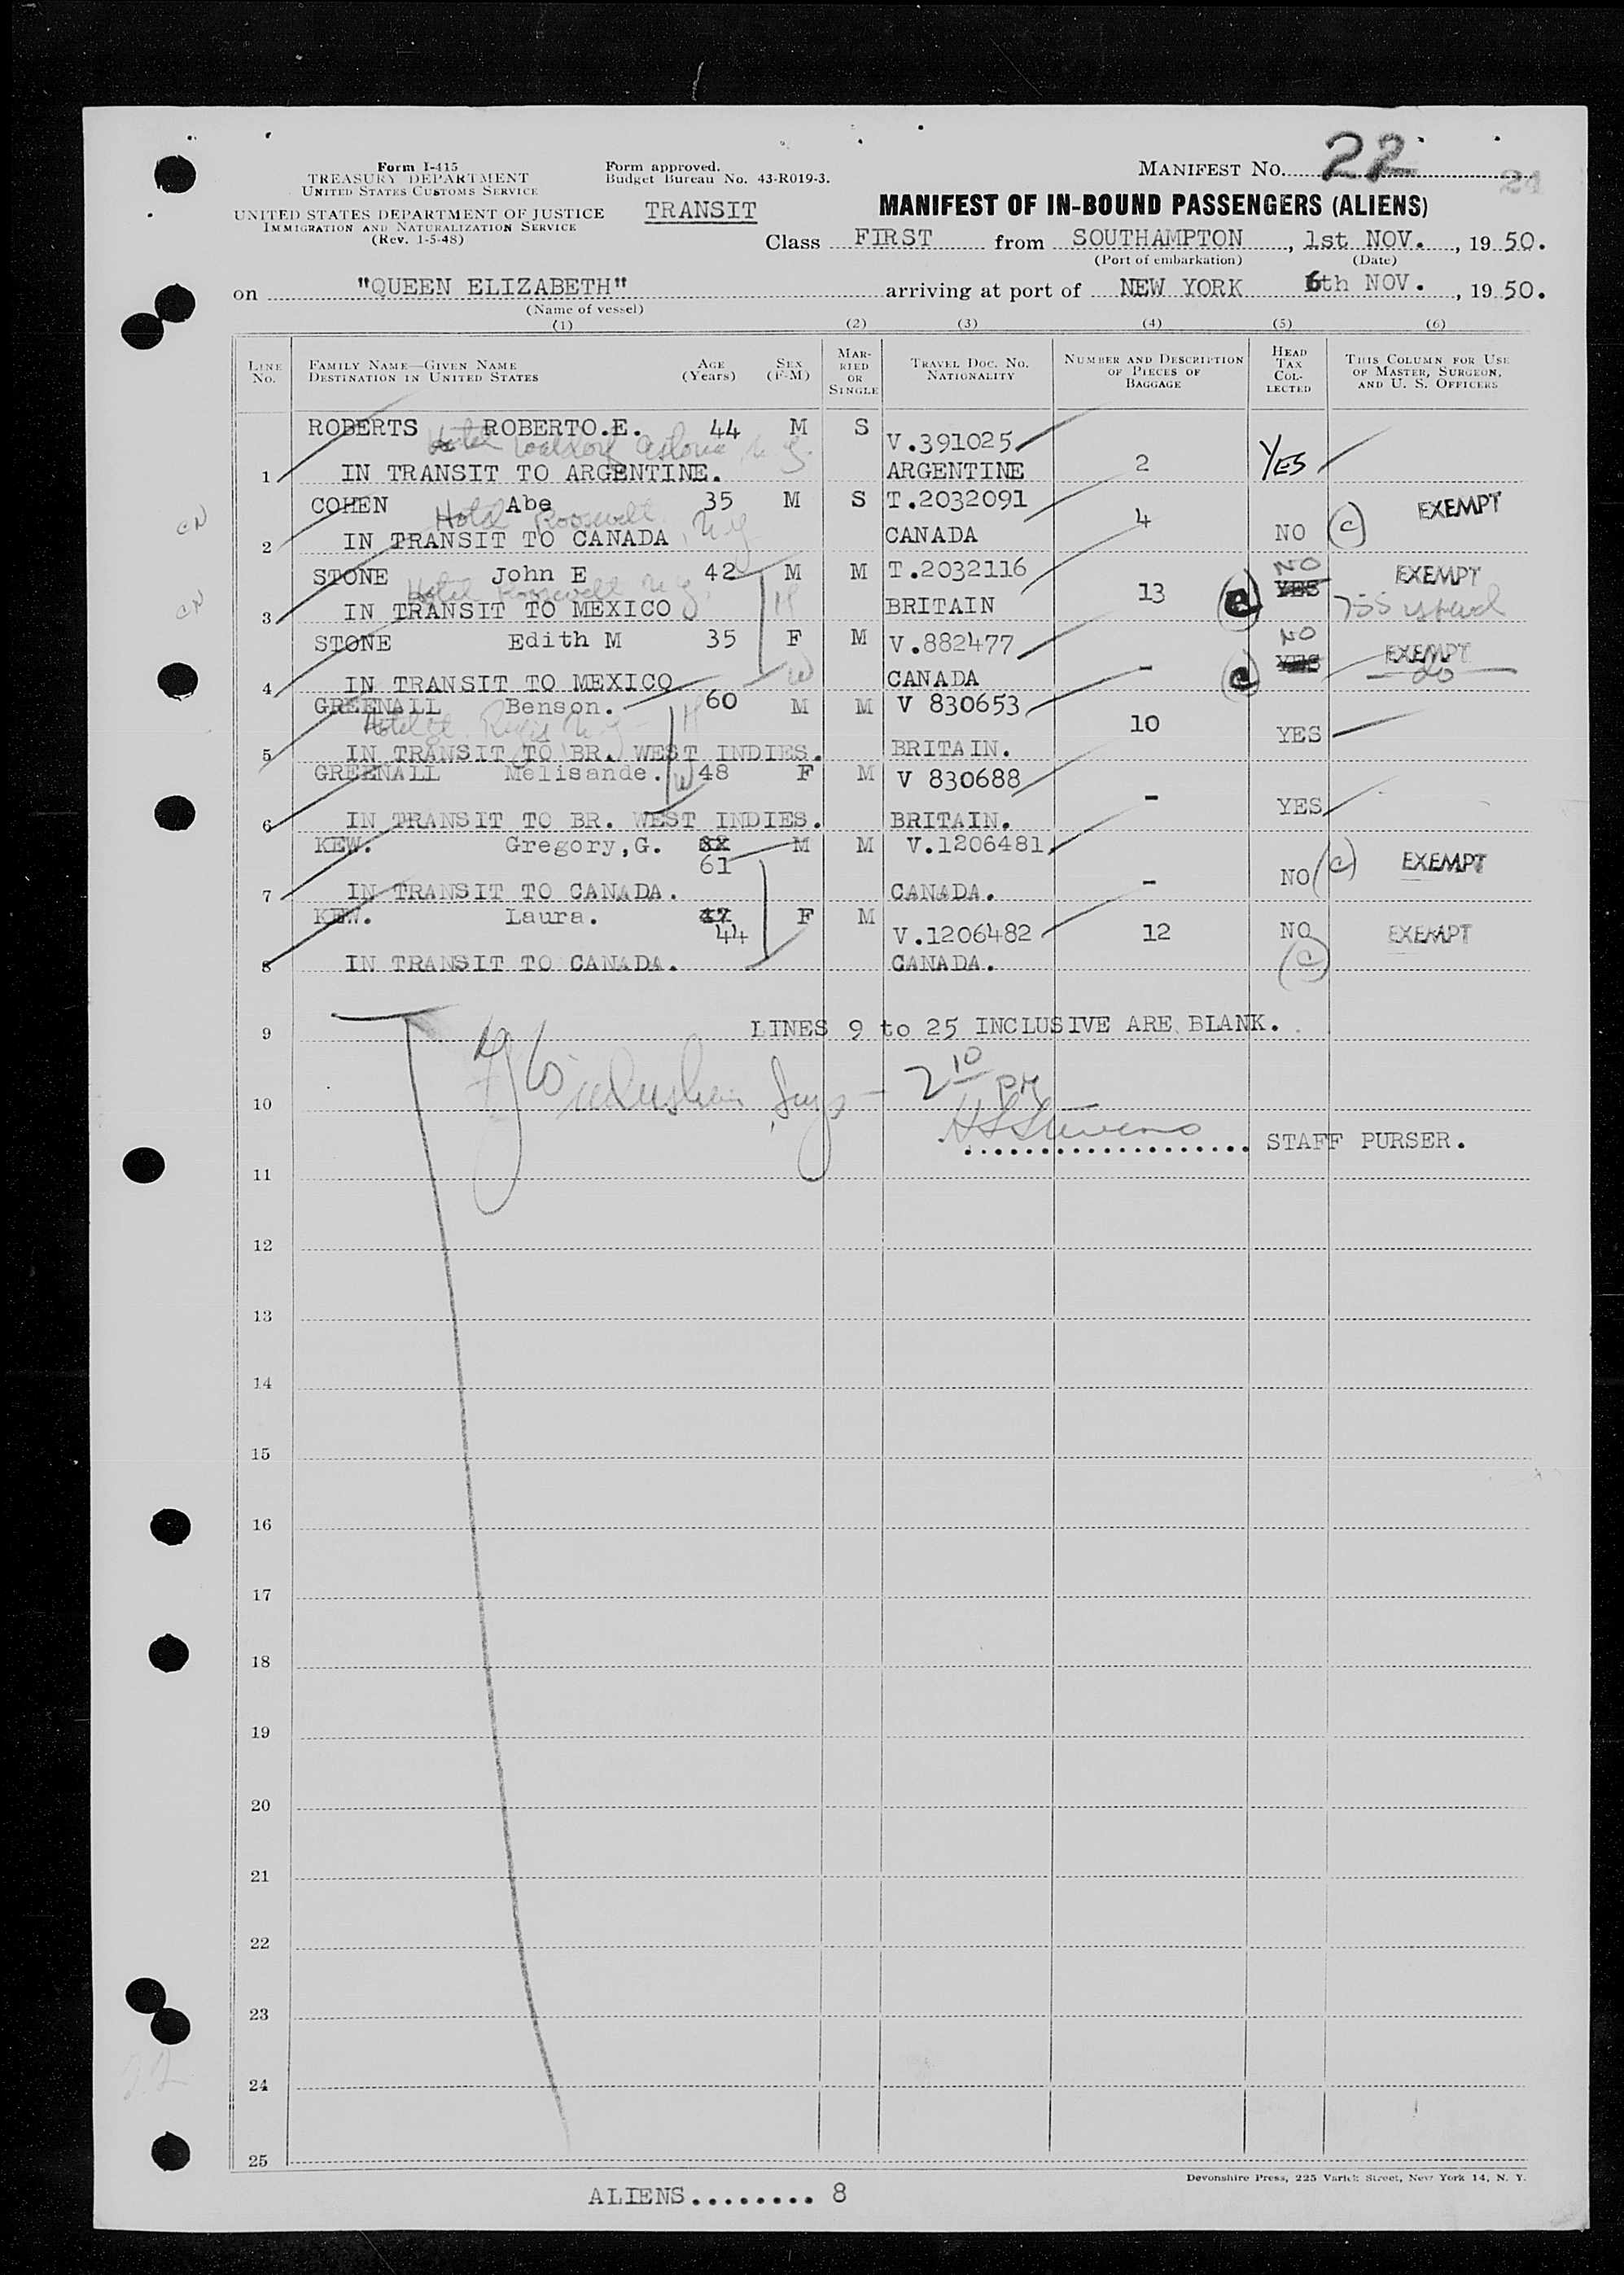 Form I-415
TREASURY DEPARTMENT
UNITED STATES CUSTOMS SERVICE
UNITED STATES DEPARTMENT OF JUSTICE
IMMIGRATION AND NATURALIZATION SERVICE
(Rev. 1-5-48)
Form approved.
Budget Bureau No. 43-R019-3.
TRANSIT
MANIFEST NO. 22
MANIFEST OF IN-BOUND PASSENGERS (ALIENS)
Class FIRST from SOUTHAMPTON, 1st NOV., 1950.
(Port of embarkation) (Date)
on "QUEEN ELIZABETH" arriving at port of NEW YORK 6th NOV., 1950.
(Name of vessel)
(1) (2) (3) (4) (5) (6)
LINE NO. FAMILY NAME—GIVEN NAME DESTINATION IN UNITED STATES AGE (Years) SEX (F-M) MARRIED OR SINGLE TRAVEL DOC. NO. NATIONALITY NUMBER AND DESCRIPTION OF PIECES OF BAGGAGE HEAD TAX COLLECTED THIS COLUMN FOR USE OF MASTER, SURGEON, AND U. S. OFFICERS
ROBERTS ROBERTO.E. 44 M S V.391025
Hotel Waldorf Astoria N.Y.
1 IN TRANSIT TO ARGENTINE. ARGENTINE 2 YES
COHEN Abe 35 M S T.2032091 EXEMPT
CN Hotel Roosevelt N.Y.
2 IN TRANSIT TO CANADA CANADA 4 NO (c)
STONE John E 42 M M T.2032116 NO EXEMPT
CN Hotel Roosevelt N.Y. H
3 IN TRANSIT TO MEXICO BRITAIN 13 YES
STONE Edith M 35 F M V.882477 NO EXEMPT
4 IN TRANSIT TO MEXICO W CANADA - YES do
GREENALL Benson. 60 M M V 830653
Hotel St. Regis N.Y. H
5 IN TRANSIT TO BR. WEST INDIES. BRITAIN. 10 YES
GREENALL Melisande. W 48 F M V 830688
6 IN TRANSIT TO BR. WEST INDIES. BRITAIN. - YES
KEW. Gregory,G. 32 61 M M V.1206481 EXEMPT
7 IN TRANSIT TO CANADA. CANADA. - NO (c)
KEW. Laura. 47 44 F M V.1206482 12 NO EXEMPT
8 IN TRANSIT TO CANADA. CANADA. (c)
9 LINES 9 to 25 INCLUSIVE ARE BLANK.
10 2 10 PM
HS Stevens STAFF PURSER.
11
12
13
14
15
16
17
18
19
20
21
22
23
24
25
Devonshire Press, 225 Varick Street, New York 14, N. Y.
ALIENS........ 8